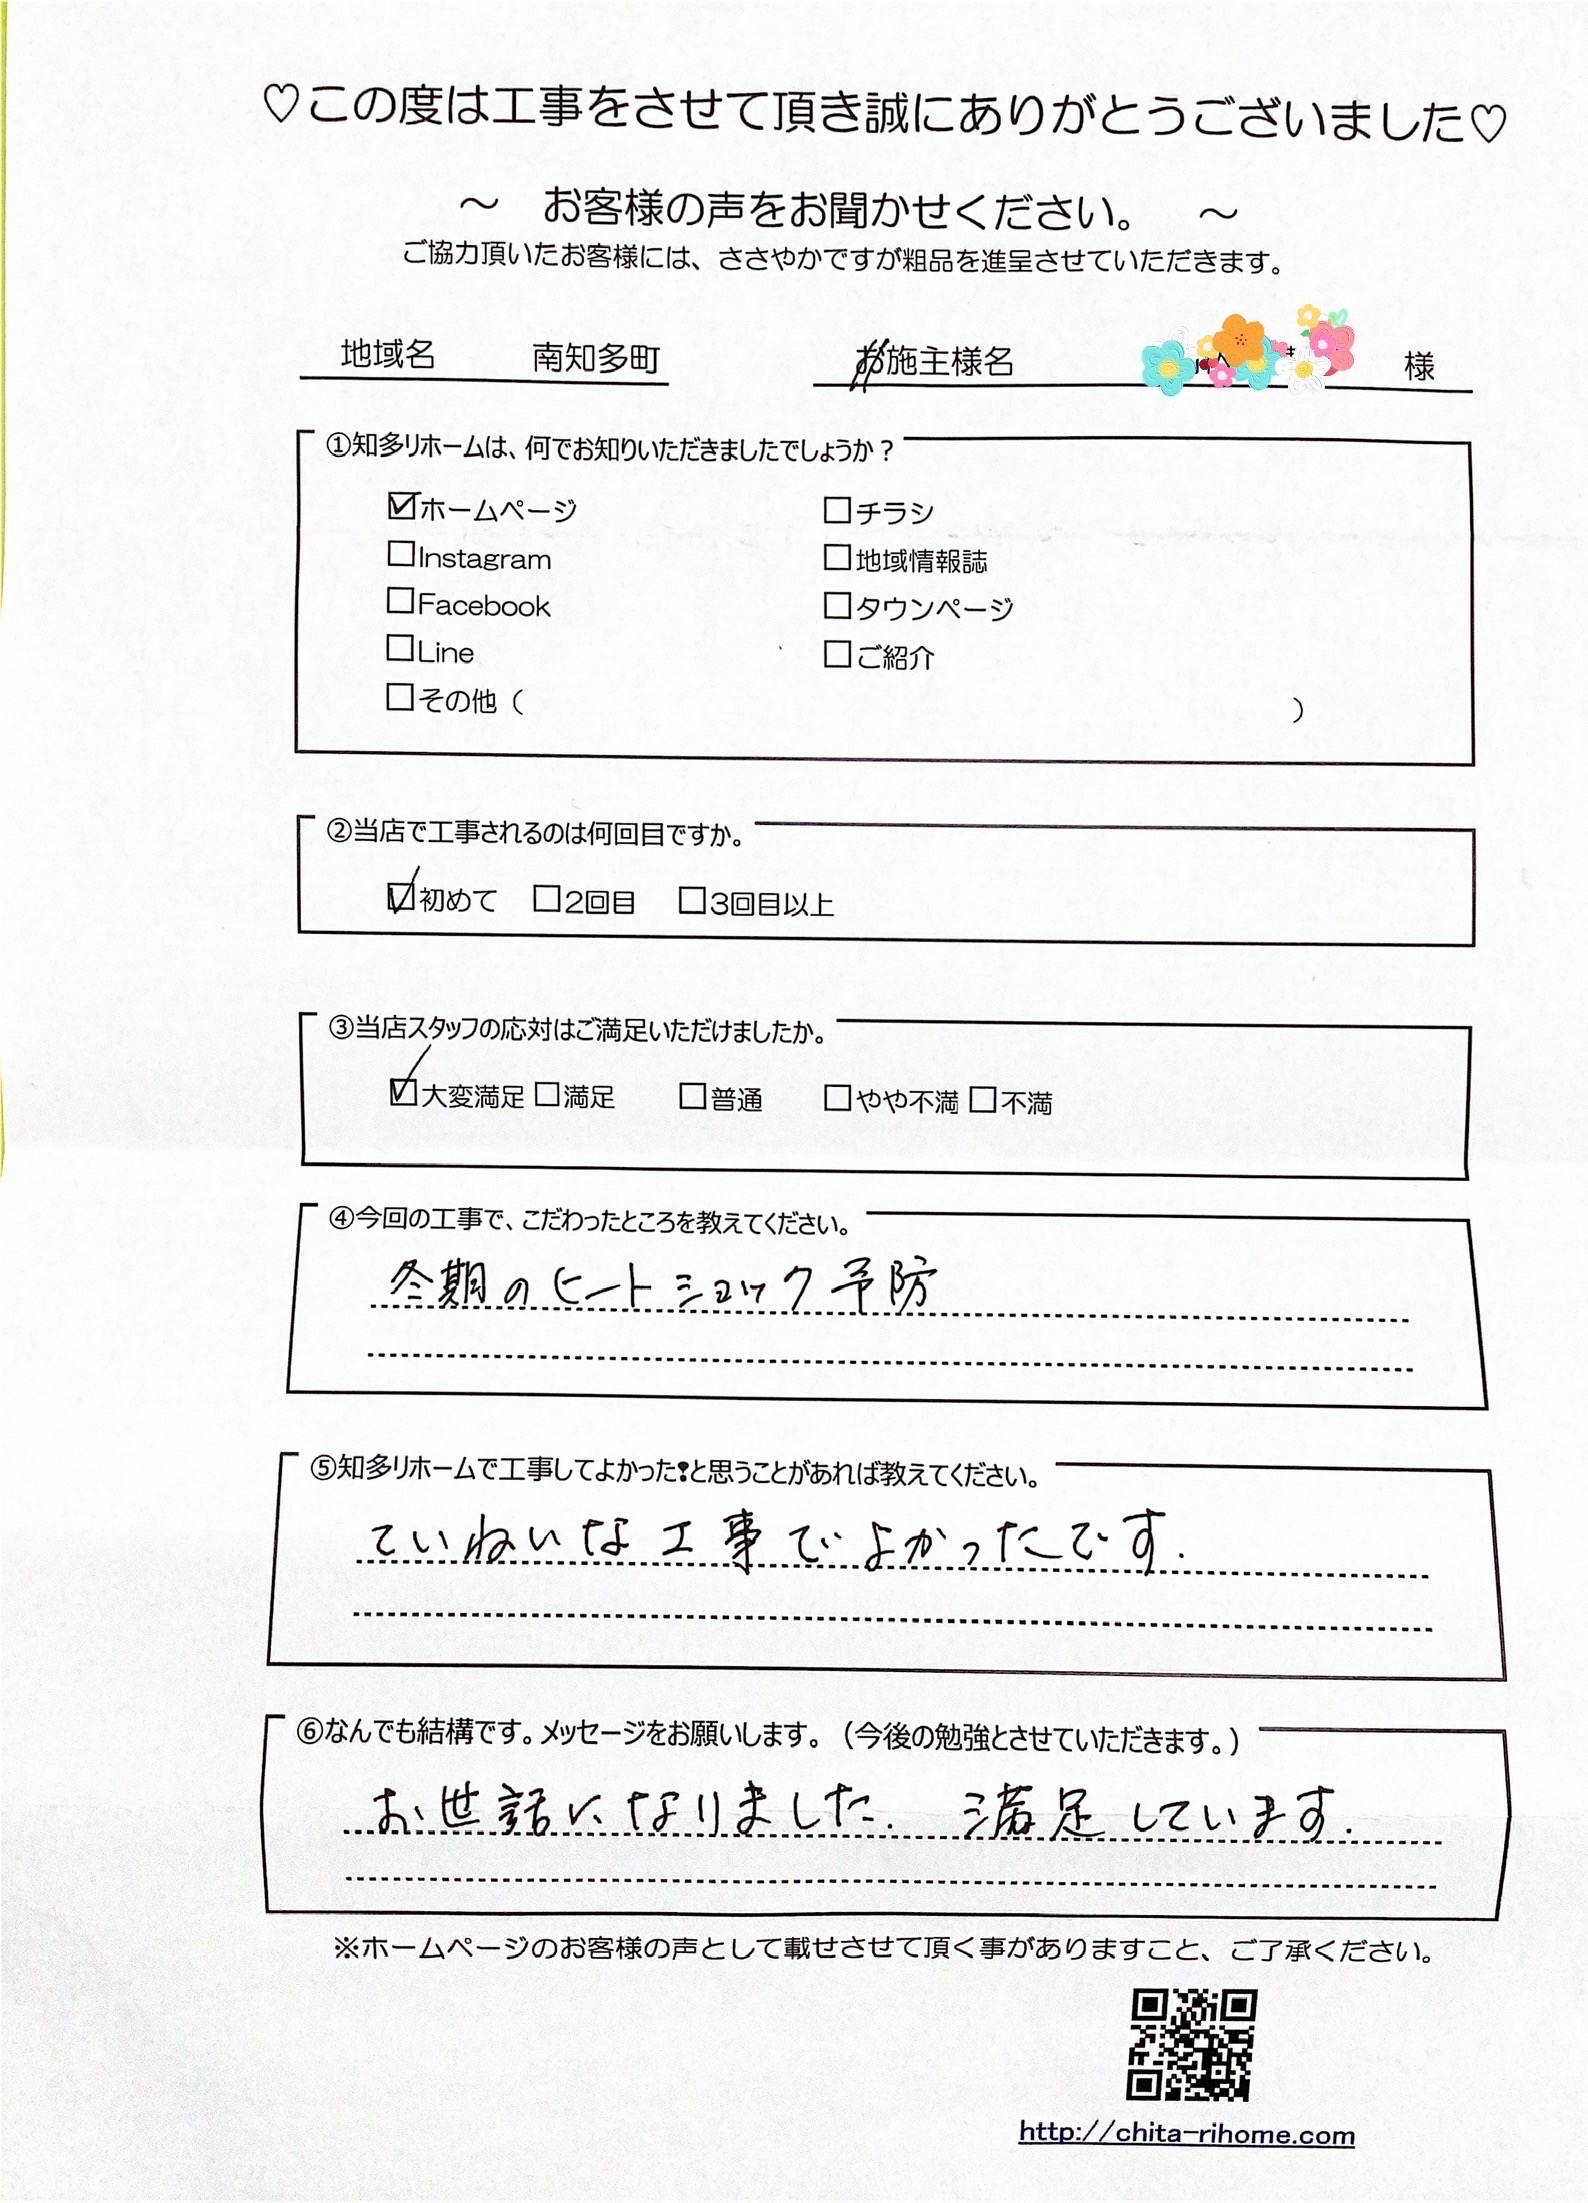 ♡この度は工事をさせて頂き誠にありがとうございました♡
～　お客様の声をお聞かせください。　～
ご協力頂いたお客様には、ささやかですが粗品を進呈させていただきます。
地域名　南知多町　お施主様名　様
①知多リホームは、何でお知りいただきましたでしょうか？
☑ホームページ　□チラシ
□Instagram　□地域情報誌
□Facebook　□タウンページ
□Line　□ご紹介
□その他（　）
②当店で工事されるのは何回目ですか。
☑初めて　□2回目　□3回目以上
③当店スタッフの応対はご満足いただけましたか。
☑大変満足　□満足　□普通　□やや不満　□不満
④今回の工事で、こだわったところを教えてください。
冬期のヒートショック予防
⑤知多リホームで工事してよかった❢と思うことがあれば教えてください。
ていねいな工事でよかったです.
⑥なんでも結構です。メッセージをお願いします。（今後の勉強とさせていただきます。）
お世話になりました.　満足しています.
※ホームページのお客様の声として載せさせて頂く事がありますこと、ご了承ください。
http://chita-rihome.com